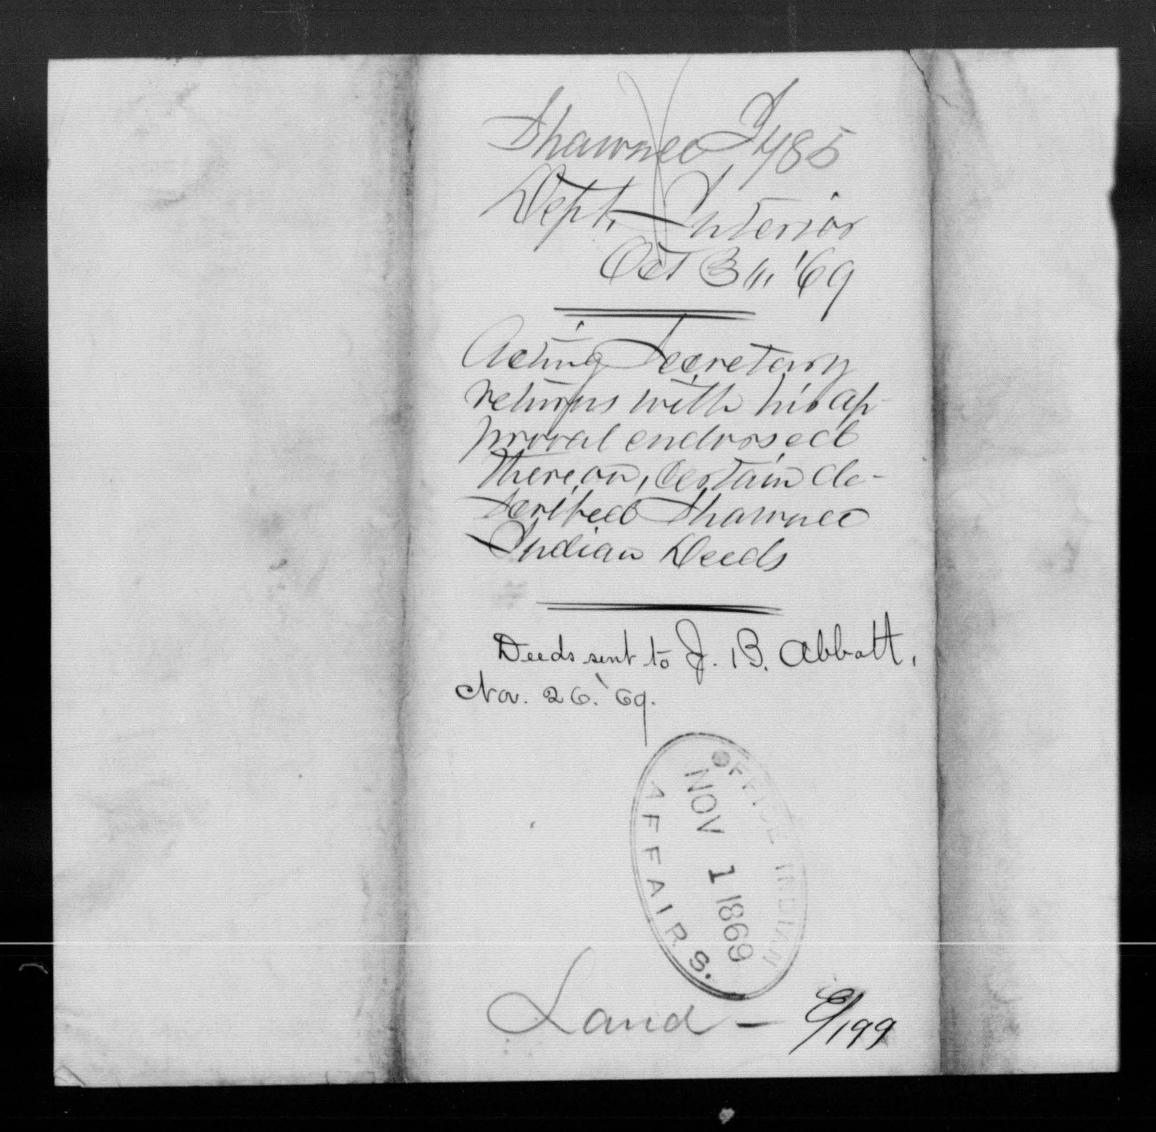 Shawnee I, 485
Dept. Interior
Oct 30, '69
Acting Secretary
returns with his ap-
proval endorsed
thereon, certain de-
scribed Shawnee
Indian Deeds
Deeds sent to J. B. Abbott,
Nov. 26. '69.
OFFICE INDIAN
NOV 1 1869
AFFAIRS.
Land — 199